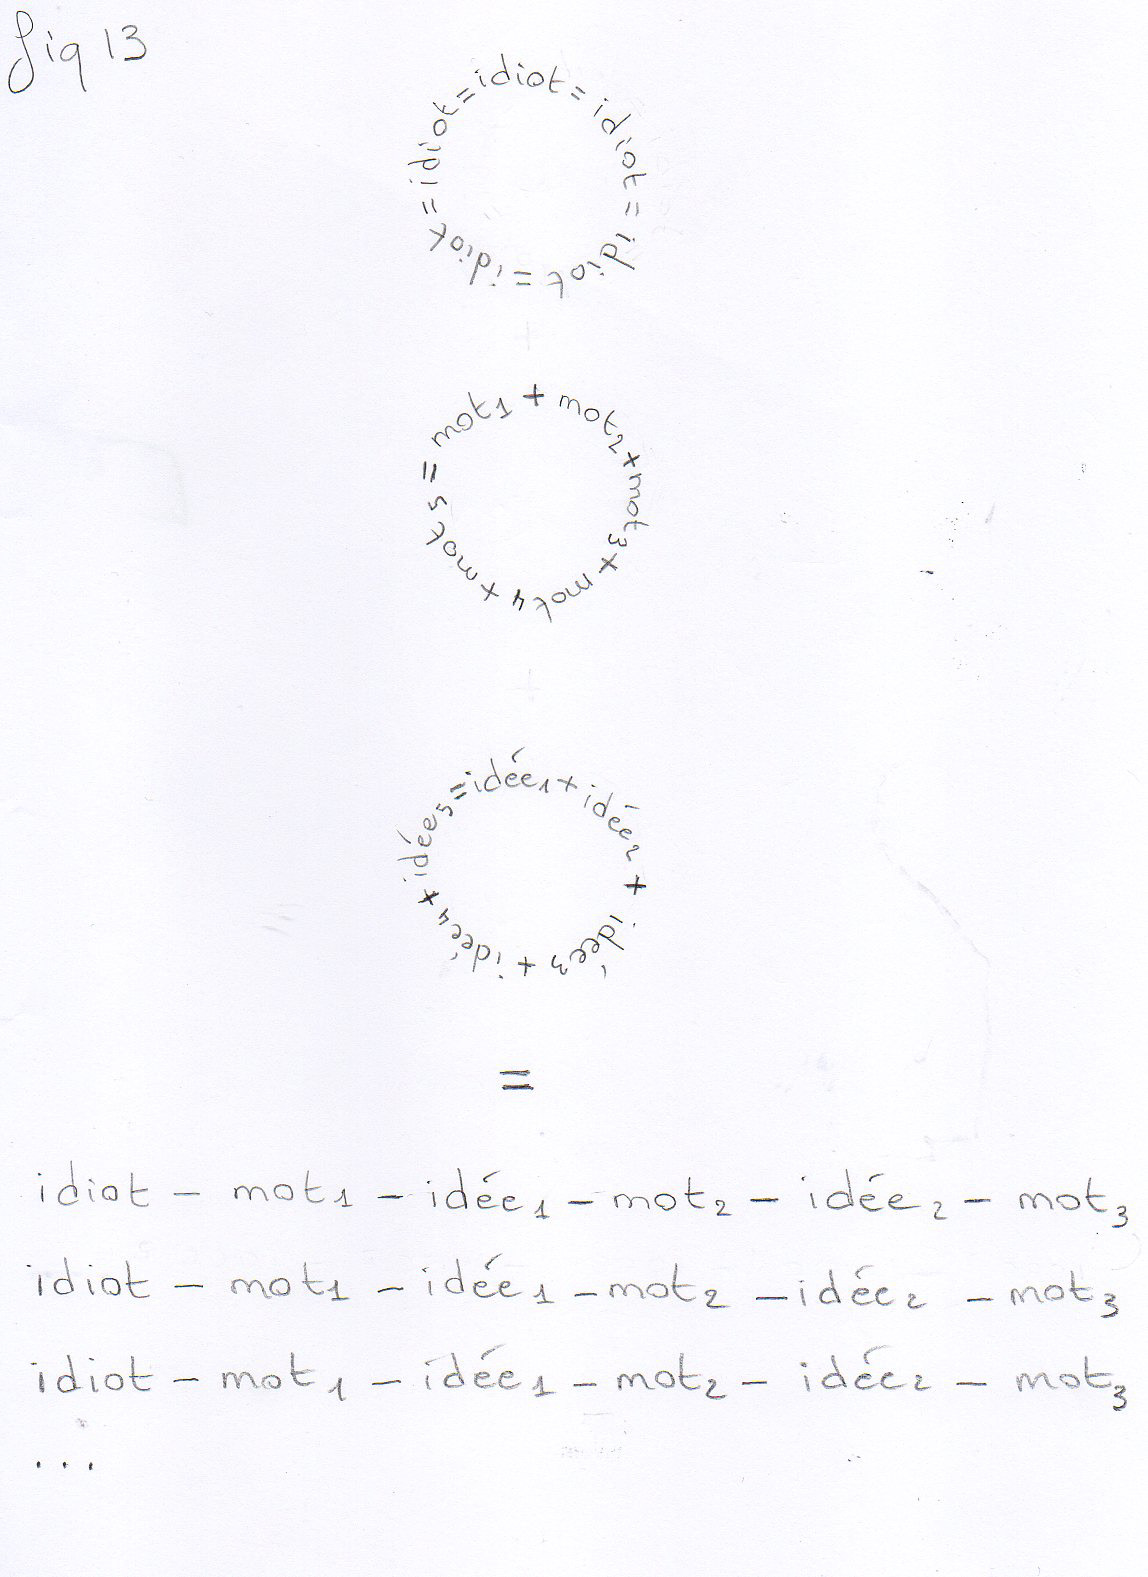 fig 13
idiot = idiot = idiot = idiot = idiot =
mot1 + mot2 + mot3 + mot4 + mot5 =
idée1 + idée2 + idée3 + idée4 + idée5 =
=
idiot - mot1 - idée1 - mot2 - idée2 - mot3
idiot - mot1 - idée1 - mot2 - idée2 - mot3
idiot - mot1 - idée1 - mot2 - idée2 - mot3
...